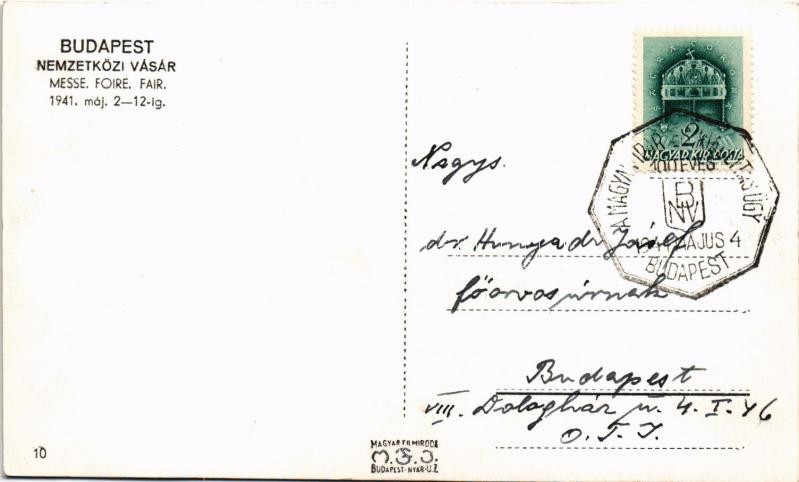 BUDAPEST
NEMZETKÖZI VÁSÁR
MESSE. FOIRE. FAIR.
1941. máj. 2—12-ig.
SACRA CORONA
2
MAGYAR KIR. POSTA
A MAGYAR IPAR ÉS KIÁLLÍTÁSÜGY
100 ÉVES
BNV
1941 MÁJUS 4
BUDAPEST
Nagys.
dr. Hunyadi József
főorvos úrnak
Budapest
VIII. Dologház u. 4. I. 46
O. T. I.
10
MAGYAR FILMIRODA
M.F.I.
BUDAPEST-NYÁR-U.2.